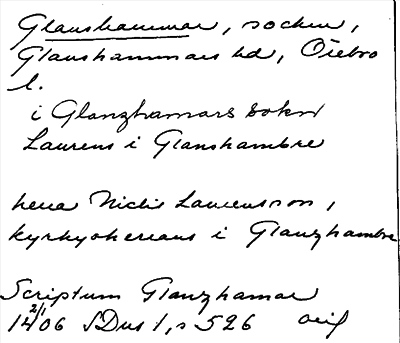 Glanshammar, socken,
Glanshammars hd, Örebro
l.
i Glanzhamars sokn
Laurens i Glanshambre
herra Niclis Laurensson,
kyrkyoherrans i Glanzhambre
Scriptum Glanzhamar
2/1
1406 SDns 1, s 526 orig